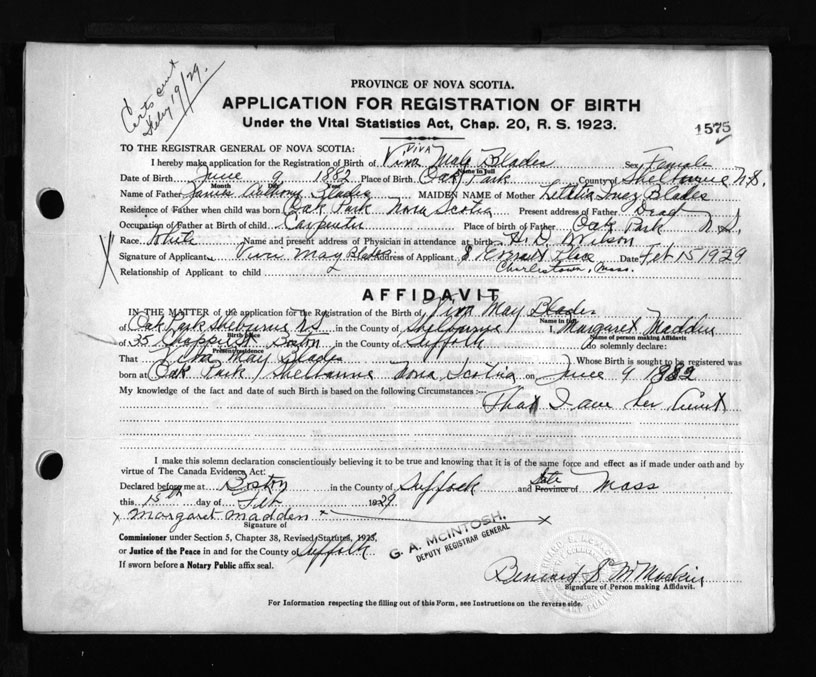 Certs sent
Feby 19/29.
PROVINCE OF NOVA SCOTIA.
APPLICATION FOR REGISTRATION OF BIRTH
Under the Vital Statistics Act, Chap. 20, R. S. 1923.
1575
TO THE REGISTRAR GENERAL OF NOVA SCOTIA:
VIVA
I hereby make application for the Registration of Birth of Viva May Blades Sex Female
Name in full
Date of Birth June 9 1882 Place of Birth Oak Park County of Shelburne N.S.
Month Day Year
Name of Father James Anthony Blades MAIDEN NAME of Mother Letitia Inez Blades
Residence of Father when child was born Oak Park Nova Scotia Present address of Father Dead
Occupation of Father at Birth of Child Carpenter Place of birth of Father Oak Park N.S.
Race White Name and present address of Physician in attendance at birth H. D. Wilson
Signature of Applicant Viva May Blades Address of Applicant 8 Everett Place Date Feb 15 1929
Charlestown, Mass.
Relationship of Applicant to child
AFFIDAVIT
IN THE MATTER of the application for the Registration of the Birth of Viva May Blades
Name in full
of Oak Park Shelburne N.S in the County of Shelburne I, Margaret Madden
Birth place Name of person making Affidavit
of 35 Boston in the County of Suffolk do solemnly declare:
Present residence
That May Blades Whose Birth is sought to be registered was
born at Oak Park Shelburne Nova Scotia on June 9 1882
My knowledge of the fact and date of such Birth is based on the following Circumstances :—
That I am her Aunt
I make this solemn declaration conscientiously believing it to be true and knowing that it is of the same force and effect as if made under oath and by
virtue of The Canada Evidence Act:
Declared before me at Boston in the County of Suffolk and State Province of Mass
this 15th day of Feb 1929
x Margaret Madden x
Signature of
Commissioner under Section 5, Chapter 38, Revised Statutes, 1923,
or Justice of the Peace in and for the County of Suffolk
If sworn before a Notary Public affix seal.
G. A. MCINTOSH,
DEPUTY REGISTRAR GENERAL
Bernard S
Signature of Person making Affidavit.
For Information respecting the filling out of this Form, see Instructions on the reverse side.